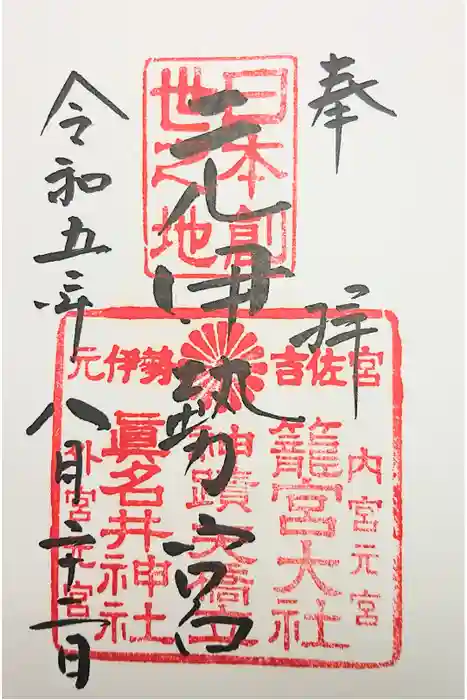 奉拝
日本創
世之地
元伊勢宮
元伊勢
吉佐宮
内宮元宮
籠宮大社
神蹟天橋立
眞名井神社
外宮元宮
令和五年八月二十二日